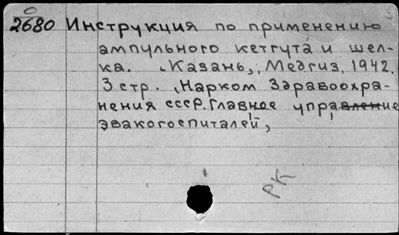 2680 Инструкция по применению
ампульного кетгута и шел-
ка. Казань, Медгиз, 1942.
3 стр. (Нарком Здравоохра-
нения СССР. Главное управление
эвакогоспиталей)
РК